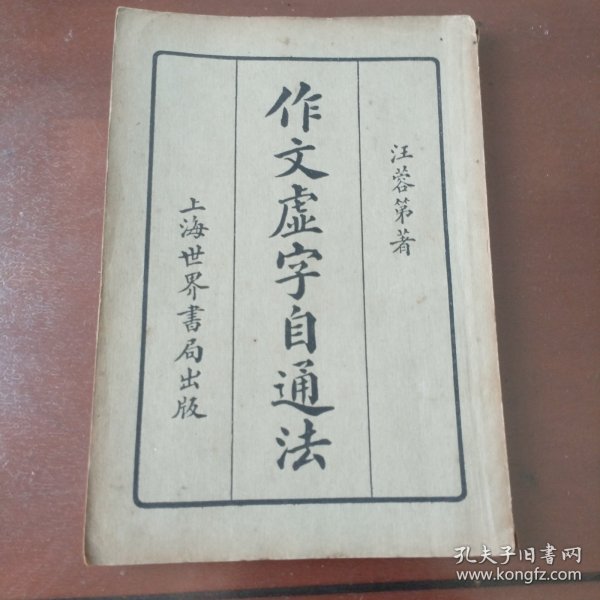 汪蓉第著
作文虛字自通法
上海世界書局出版
孔夫子旧书网
www.kongfz.com